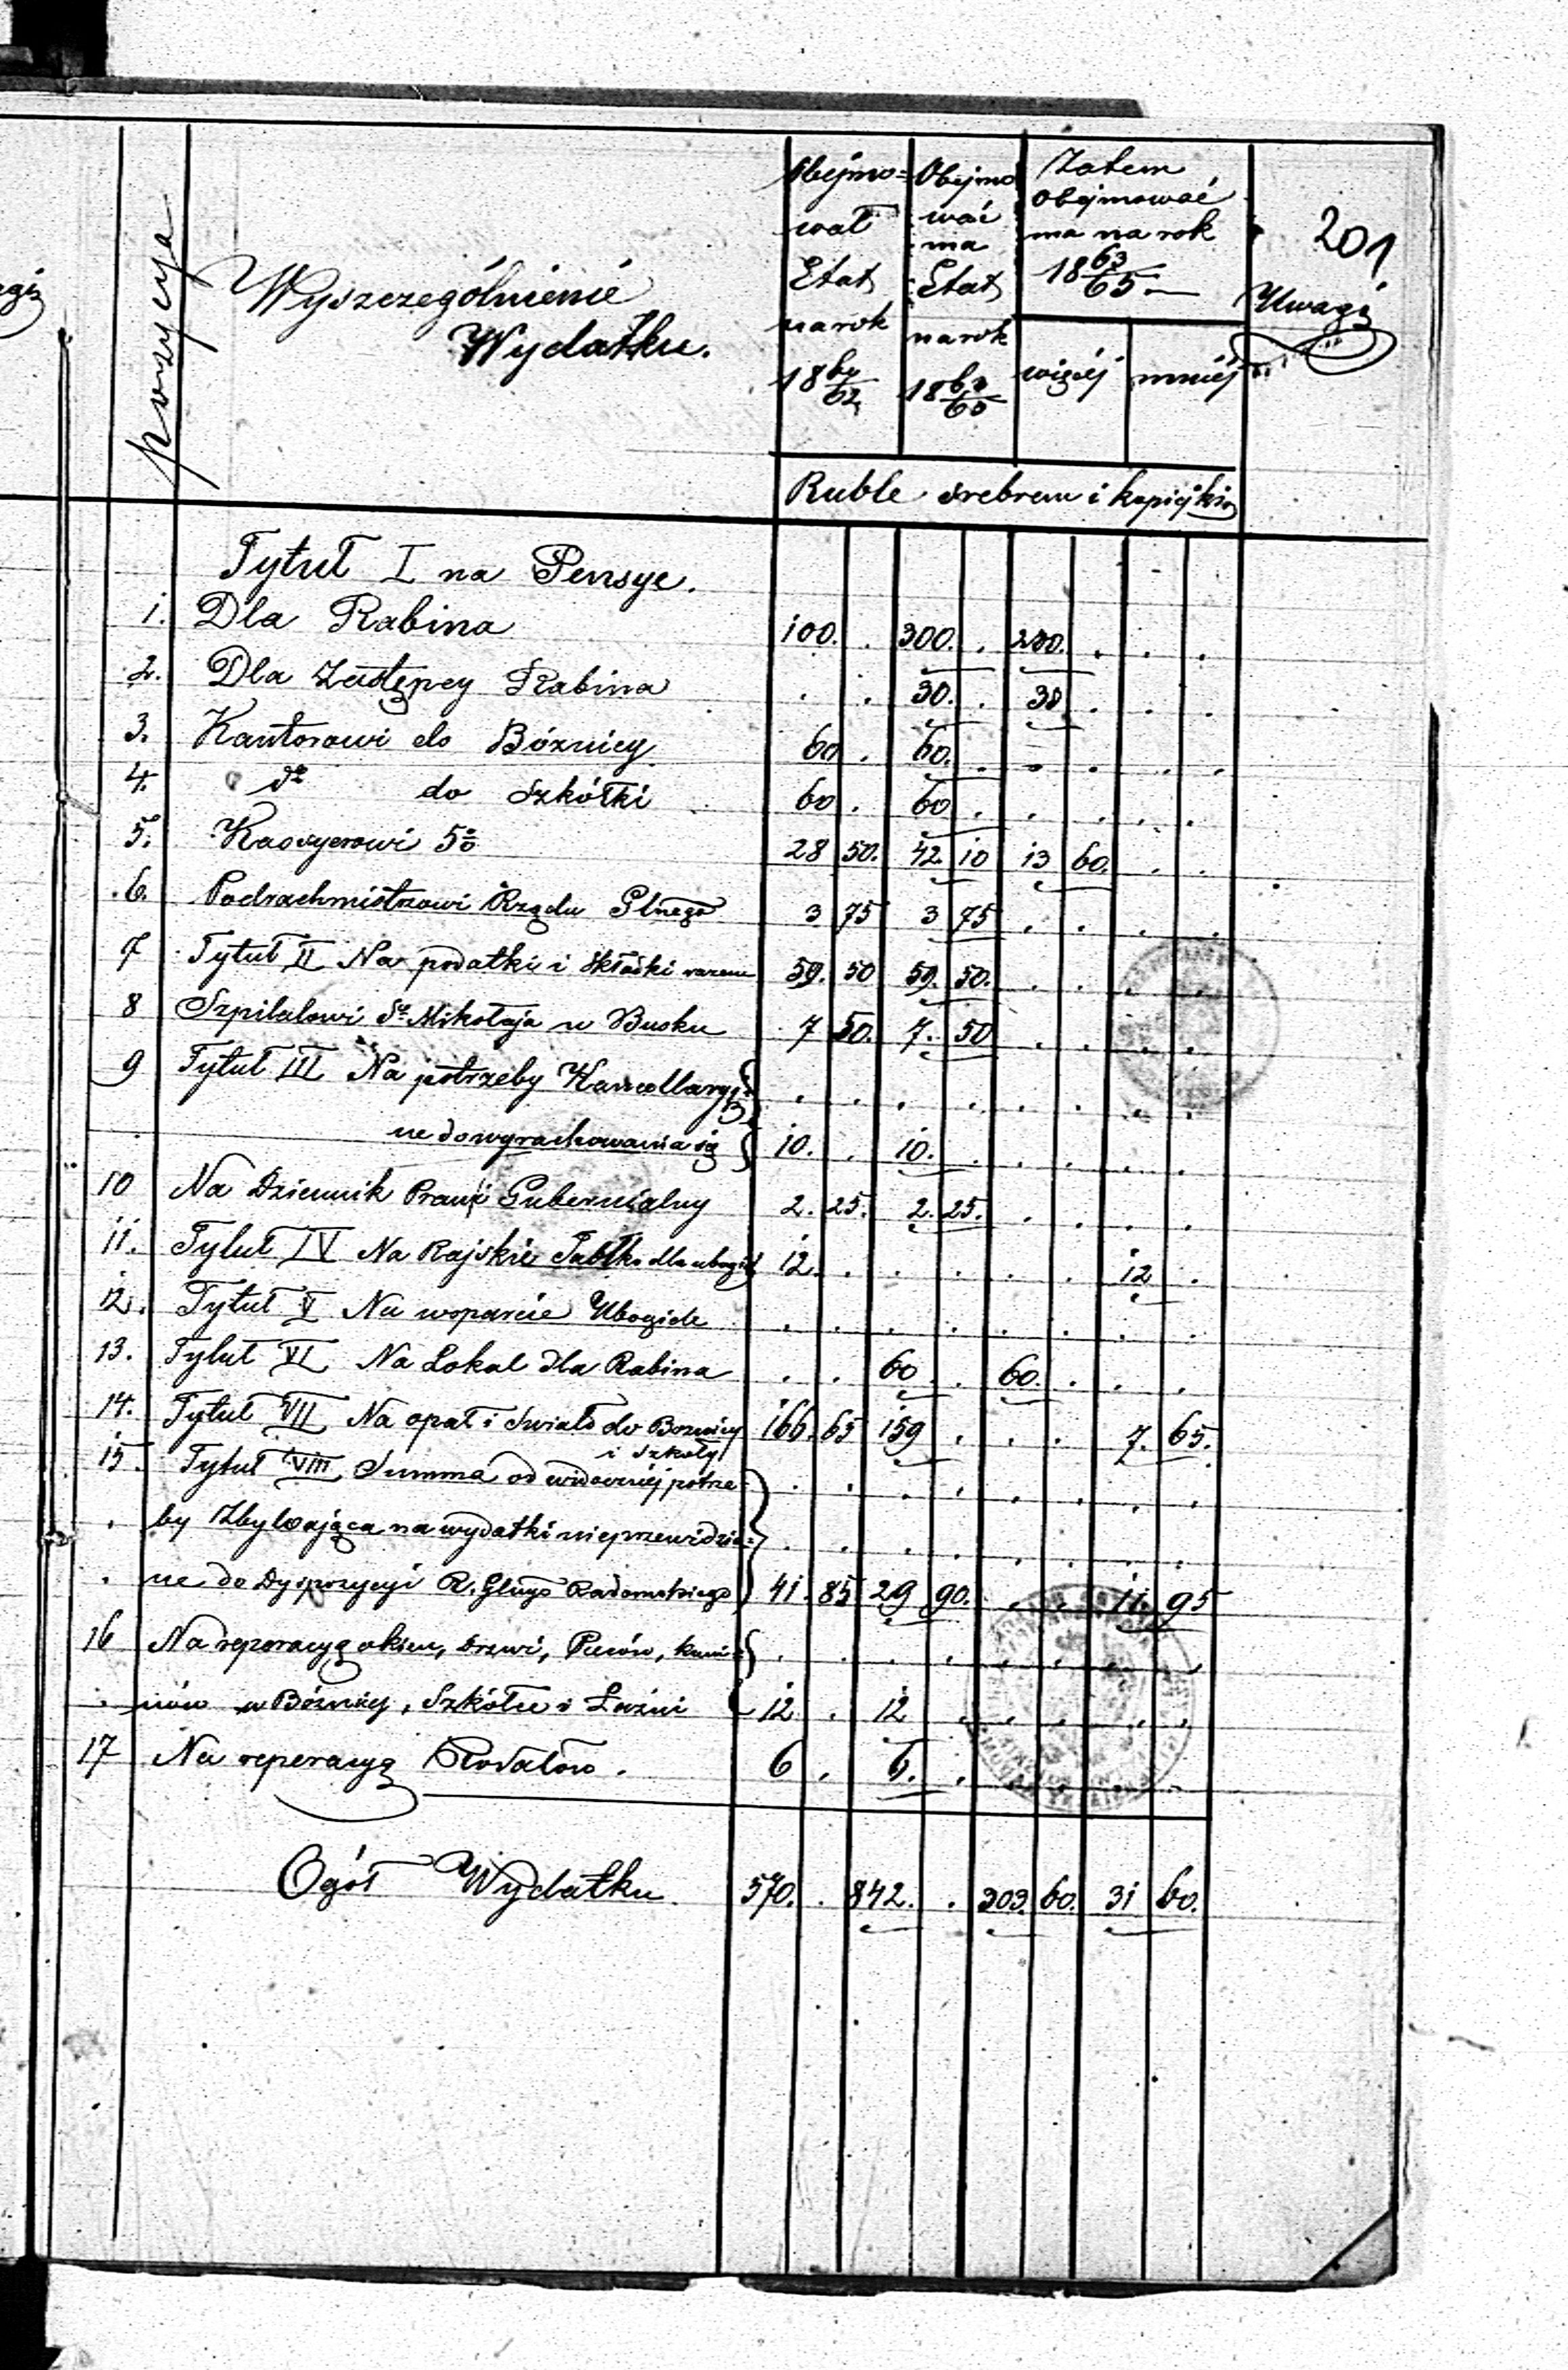 201
pozycya
Wyszczególnienie
Wydatku.
Obejmo=
wał
Etat
na rok
18 60/62
Obejmo
wać
ma
Etat
na rok
18 63/65
Zatem
obejmować
ma na rok
18 63/65
więcej
mniej
Uwagi
Ruble srebrem i kopiejki
Tytuł I na Pensye.
1. Dla Rabina 100. . 300. . 200. . . .
2. Dla Zastępcy Rabina . . 30. . 30 . . .
3. Kantorowi do Bóżnicy 60 . 60. . . . . .
4. do do Szkółki 60 . 60 . . . . .
5. Kassyerowi 5% 28 50. 42. 10 13 60. . .
6. Podrachmistrzowi Rządu Glnego 3 75 3 75 . . . .
7 Tytuł II Na podatki i składki razem 59. 50 59. 50. . . . .
8 Szpitalowi Sgo Mikołaja w Busku 7 50. 7. 50 . . . .
9 Tytuł III Na potrzeby Kancellaryi . . . . . . . .
ne do wyrachowania się 10. . 10. . . . . .
10 Na Dziennik Gubernialny 2. 25. 2. 25. . . . .
11. Tytuł IV Na Rajskie Jabłko dla ubogich 12. . . . . . 12 .
12. Tytuł V Na wsparcie Ubogich . . . . . . . .
13. Tytuł VI Na Lokal dla Rabina . . 60 . 60. . . .
14. Tytuł VII Na opał i Swiatło do Boznicy 166. 65 159 . . . 7. 65.
i Szkoły
15 Tytuł VIII Summa od widocznej potrze . . . . . . . .
by Zbywająca na wydatki nieprzewidzia= . . . . . . . .
ne do Dyspozycyi R. Glnego Radomskiego 41. 85 29 90. . . 11. 95
16 Na reperacyą okien, drzwi, Pieców, komi= . . . . . . . .
nów w Bóżnicy, Szkółce i Łaźni 12 . 12 . . . . .
17 Na reperacyą Rodałow. 6 . 6. . . . . .
Ogół Wydatku 570. . 842. . 303. 60. 31 60.